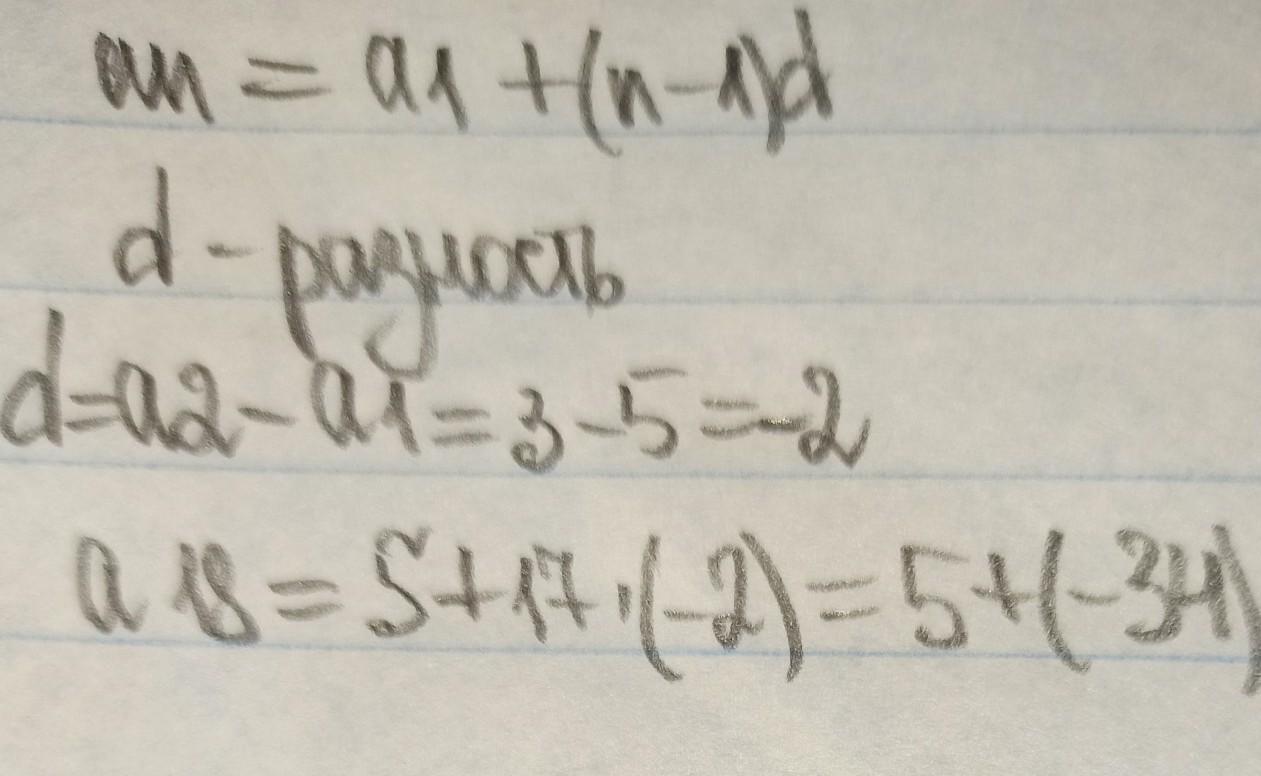 an = a1 + (n-1)d
d - разность
d=a2-a1=3-5=-2
a 18 = 5+17·(-2)=5+(-34)